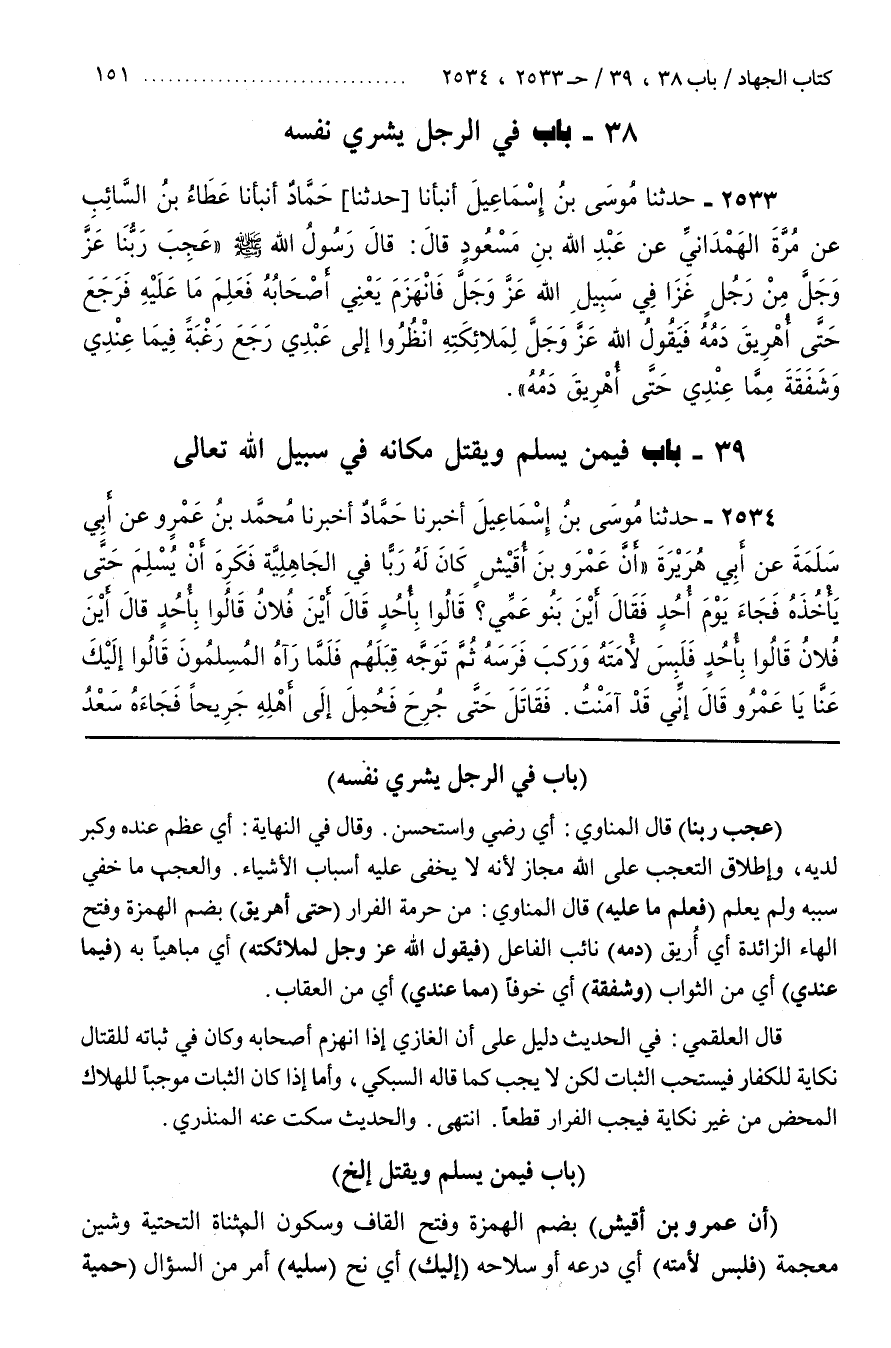 كتاب الجهاد / باب ٣٨ ، ٣٩ / حـ ٢٥٣٣ ، ٢٥٣٤ ................................ ١٥١
٣٨ ـ باب في الرجل يشري نفسه
٢٥٣٣ ـ حدثنا مُوسَى بنُ إِسْمَاعِيلَ أنبأنا [حدثنا] حَمَّادٌ أنبأنا عَطَاءُ بنُ السَّائِبِ
عن مُرَّةَ الهَمْدَانيِّ عن عَبْدِ الله بنِ مَسْعُودٍ قالَ: قالَ رَسُولُ الله ﷺ «عَجِبَ رَبُّنَا عَزَّ
وَجَلَّ مِنْ رَجُلٍ غَزَا فِي سَبِيلِ الله عَزَّ وَجَلَّ فَانْهَزَمَ يَعْنِي أَصْحَابُهُ فَعَلِمَ مَا عَلَيْهِ فَرَجَعَ
حَتَّى أُهْرِيقَ دَمُهُ فَيَقُولُ الله عَزَّ وَجَلَّ لِمَلائِكَتِهِ انْظُرُوا إلى عَبْدِي رَجَعَ رَغْبَةً فِيمَا عِنْدِي
وَشَفَقَةَ مِمَّا عِنْدِي حَتَّى أُهْرِيقَ دَمُهُ».
٣٩ ـ باب فيمن يسلم ويقتل مكانه في سبيل الله تعالى
٢٥٣٤ ـ حدثنا مُوسَى بنُ إِسْمَاعِيلَ أخبرنا حَمَّادٌ أخبرنا مُحمَّد بنُ عَمْرٍو عن أَبِي
سَلَمَةَ عن أَبِي هُرَيْرَةَ «أَنَّ عَمْرَو بنَ أُقَيْشٍ كَانَ لَهُ رَبًّا في الجَاهِلِيَّة فَكَرِهَ أَنْ يُسْلِمَ حَتَّى
يَأْخُذَهُ فَجَاءَ يَوْمَ أُحُدٍ فَقَالَ أَيْنَ بَنُو عَمِّي؟ قَالُوا بِأُحُدٍ قَالَ أَيْنَ فُلانُ قَالُوا بِأُحُدٍ قالَ أَيْنَ
فُلانُ قَالُوا بِأُحُدٍ فَلَبِسَ لأْمَتَهُ وَرَكِبَ فَرَسَهُ ثُمَّ تَوَجَّه قِبَلَهُم فَلَمَّا رَآهُ المُسلِمُونَ قَالُوا إلَيْكَ
عَنَّا يَا عَمْرُو قَالَ إنِّي قَدْ آمَنْتُ. فَقَاتَلَ حَتَّى جُرِحَ فَحُمِلَ إلَى أَهْلِهِ جَرِيحاً فَجَاءَهُ سَعْدُ
(باب في الرجل يشري نفسه)
(عجب ربنا) قال المناوي: أي رضي واستحسن. وقال في النهاية: أي عظم عنده وكبر
لديه، وإطلاق التعجب على الله مجاز لأنه لا يخفى عليه أسباب الأشياء. والعجب ما خفي
سببه ولم يعلم (فعلم ما عليه) قال المناوي: من حرمة الفرار (حتى أهريق) بضم الهمزة وفتح
الهاء الزائدة أي أُريق (دمه) نائب الفاعل (فيقول الله عز وجل لملائكته) أي مباهياً به (فيما
عندي) أي من الثواب (وشفقة) أي خوفاً (مما عندي) أي من العقاب.
قال العلقمي: في الحديث دليل على أن الغازي إذا انهزم أصحابه وكان في ثباته للقتال
نكاية للكفار فيستحب الثبات لكن لا يجب كما قاله السبكي، وأما إذا كان الثبات موجباً للهلاك
المحض من غير نكاية فيجب الفرار قطعاً. انتهى. والحديث سكت عنه المنذري.
(باب فيمن يسلم ويقتل إلخ)
(أن عمرو بن أقيش) بضم الهمزة وفتح القاف وسكون المثناة التحتية وشين
معجمة (فلبس لأمته) أي درعه أو سلاحه (إليك) أي نح (سليه) أمر من السؤال (حمية